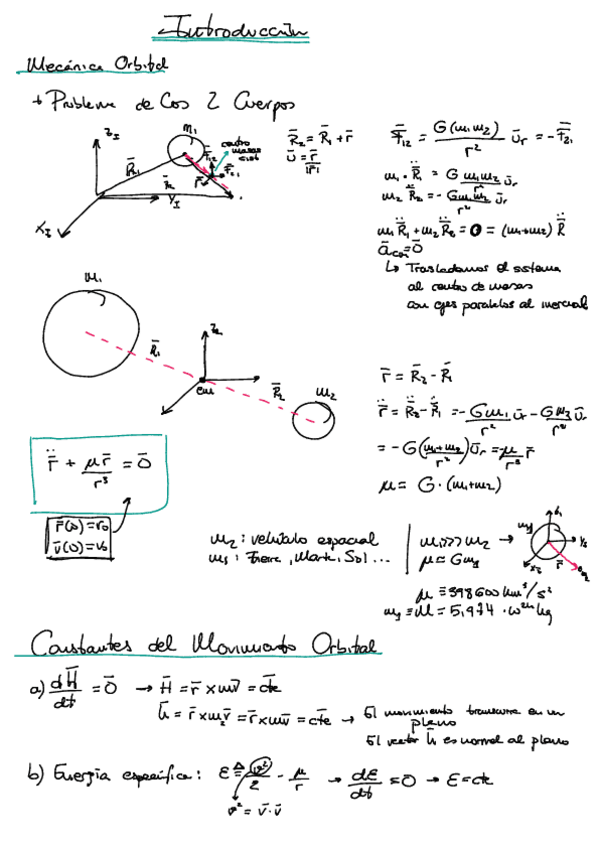 Introducción
Mecánica Orbital
→ Problema de los 2 Cuerpos
Z_I
m₁
centro masas
R̄₁
F̄₁₂
F̄₂₁
r̄
R̄₂
Y_I
X_I
R̄₂ = R̄₁ + r̄
ū = r̄/|r̄|
F̄₁₂ = G(m₁m₂)/r² ū_r = -F̄₂₁
m₁ · R̄̈₁ = G m₁m₂/r² ū_r
m₂ R̄̈₂ = - G m₁m₂/r² ū_r
m₁R̄̈₁ + m₂R̄̈₂ = 0 = (m₁+m₂) R̄̈
ā_CM = 0̄
↳ Trasladamos el sistema
al centro de masas
con ejes paralelos al inercial
m₁
R̄₁
CM
R̄₂
m₂
r̄ = R̄₂ - R̄₁
r̄̈ = R̄̈₂ - R̄̈₁ = - Gm₁/r² ū_r - Gm₂/r² ū_r
= - G(m₁+m₂/r²) ū_r = -μ/r³ r̄
μ = G · (m₁+m₂)
r̄̈ + μr̄/r³ = 0̄
r̄(0) = r₀
v̄(0) = v₀
m₂ : vehículo espacial
m₁ : Tierra, Marte, Sol ...
m₁ >>> m₂ →
μ ≃ Gm₁
r̄
m₂
μ = 398600 km³/s²
m₁ ≡ M = 5,974 · 10²⁴ kg
Constantes del Movimiento Orbital
a) dH̄/dt = 0̄ → H̄ = r̄ x mv̄ = cte
h̄ = r̄ x m₂v̄ = r̄ x mv̄ = cte → El movimiento transcurre en un
plano
El vector h̄ es normal al plano
b) Energía específica: ε ≜ v²/2 - μ/r → dε/dt = 0 → ε = cte
v² = v̄ · v̄